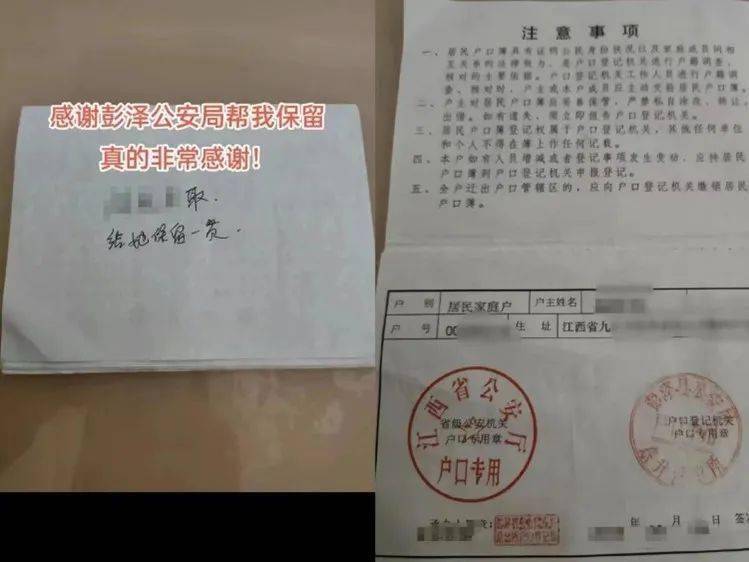 感谢彭泽公安局帮我保留
真的非常感谢!
取.
给她保留一页.
注意事项
一、居民户口簿具有证明公民身份状况以及家庭成员间相
互关系的法律效力，是户口登记机关进行户籍调查、
核对的主要依据。户口登记机关工作人员进行户籍调
查、核对时，户主或本户成员应主动交验居民户口簿。
二、户主对居民户口簿应妥善保管，严禁私自涂改、转让、
出借。如有遗失，须立即报告户口登记机关。
三、居民户口簿登记权属于户口登记机关，其他任何单位
和个人不得在簿上作任何记载。
四、本户如有人员增减或者登记事项发生变动，应持居民
户口簿到户口登记机关申报登记。
五、全户迁出户口管辖区的，应向户口登记机关缴销居民
户口簿。
户 别 居民家庭户 户主姓名
户 号 00 住 址 江西省九
江西省公安厅
省级公安机关
户口专用章
户口专用
彭泽县公安局
户口登记机关
户口专用章
年 月 日